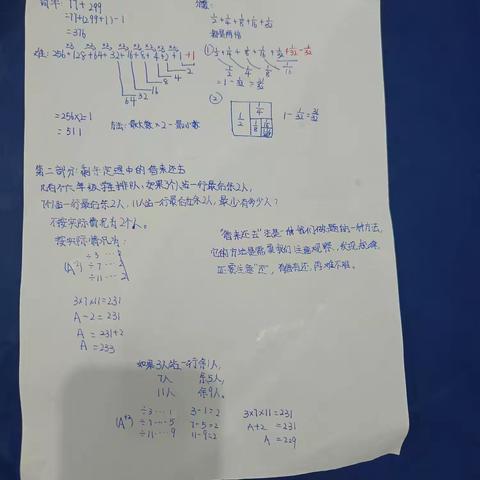 77+299
=77+(299+1)-1
=376
难: 256+128+64+32+16+8+4+2+1+1
2
4
8
16
32
64
=256×2-1
=511
方法: 最大数×2-最小数
1/2+1/4+1/8+1/16+1/32
都是两倍
① 1/2+1/4+1/8+1/16+1/32+1/32-1/32
1/2 1/4 1/8 1/16
=1-1/32=31/32
②
1/2 1/4 1/8 1/16
1-1/32=31/32
第二部分: 剩余定理中的借来还去
几有个六年级学生排队, 如果3个人站一行最后余2人,
7个站一行最后余2人, 11人站一行最后余2人, 最少有多少人?
不按实际情况有2个人。
按实际情况为:
÷3…2
÷7…2
÷11…2
3×7×11=231
A-2=231
A=231+2
A=233
"借来还去"法是一种我们做题的一种方法,
它的方法是需要我们注意观察, 发现规律,
还要注意"还", 有借有还, 再借不难。
如果3人站一行余1人,
7人 余5人,
11人 余9人。
÷3…1 3-1=2
(A+2) ÷7…5 7-5=2
÷11…9 11-9=2
3×7×11=231
A+2=231
A=229